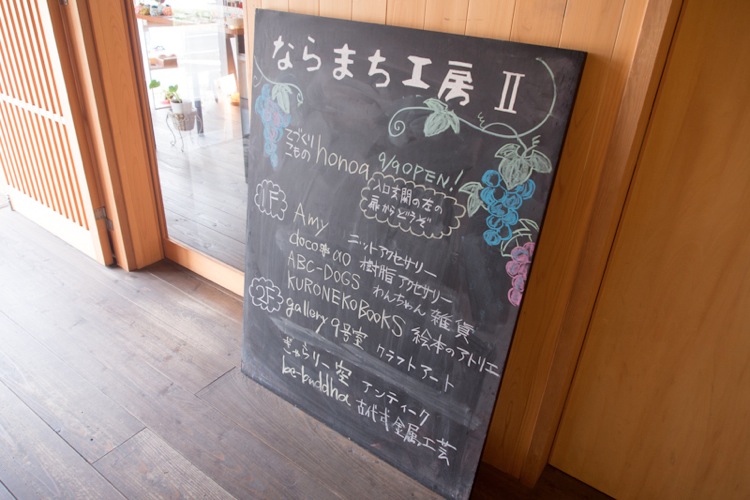 ならまち工房 Ⅱ
てづくり
こもの honoa 9/9 OPEN!
入口玄関の左の
扉からどうぞ
1F Amy ニットアクセサリー
doco*ao 樹脂アクセサリー
ABC-DOGS わんちゃん雑貨
KURONEKOBOOKS 絵本のアトリエ
2F gallery 9号室 クラフトアート
ぎゃらりー空 アンティーク
be-buddha 古代式金属工芸